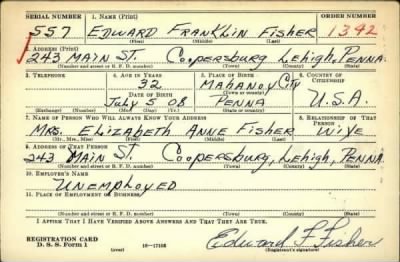 SERIAL NUMBER 1. NAME (Print) ORDER NUMBER
557 EDWARD FRANKLIN FISHER 1342
(First) (Middle) (Last)
2. ADDRESS (Print)
243 MAIN ST. COOPERSBURG LEHIGH, PENNA.
(Number and street or R. F. D. number) (Town) (County) (State)
3. TELEPHONE 4. AGE IN YEARS 5. PLACE OF BIRTH 6. COUNTRY OF CITIZENSHIP
32 MAHANOY CITY
DATE OF BIRTH (Town or county)
JULY 5 08 PENNA U.S.A.
(Exchange) (Number) (Mo.) (Day) (Yr.) (State or country)
7. NAME OF PERSON WHO WILL ALWAYS KNOW YOUR ADDRESS 8. RELATIONSHIP OF THAT PERSON
MRS. ELIZABETH ANNE FISHER WIFE
(Mr., Mrs., Miss) (First) (Middle) (Last)
9. ADDRESS OF THAT PERSON
243 MAIN ST. COOPERSBURG, LEHIGH, PENNA.
(Number and street or R. F. D. number) (Town) (County) (State)
10. EMPLOYER'S NAME
UNEMPLOYED
11. PLACE OF EMPLOYMENT OR BUSINESS
(Number and street or R. F. D. number) (Town) (County) (State)
I AFFIRM THAT I HAVE VERIFIED ABOVE ANSWERS AND THAT THEY ARE TRUE.
REGISTRATION CARD
D. S. S. Form 1 (over) 16—17105 Edward F Fisher